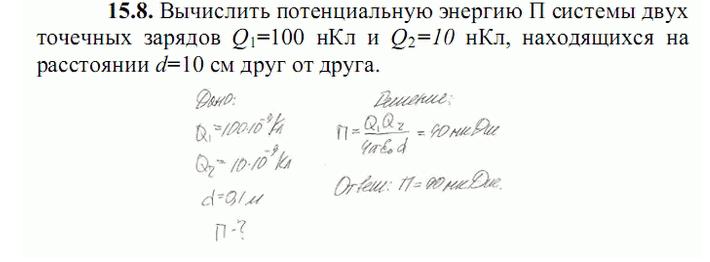 15.8. Вычислить потенциальную энергию П системы двух
точечных зарядов Q₁=100 нКл и Q₂=10 нКл, находящихся на
расстоянии d=10 см друг от друга.
Дано:
Q₁=100·10⁻⁹Кл
Q₂=10·10⁻⁹Кл
d=0,1м
П-?
Решение:
П=Q₁Q₂/4πε₀d=90мкДж
Ответ: П=90мкДж.